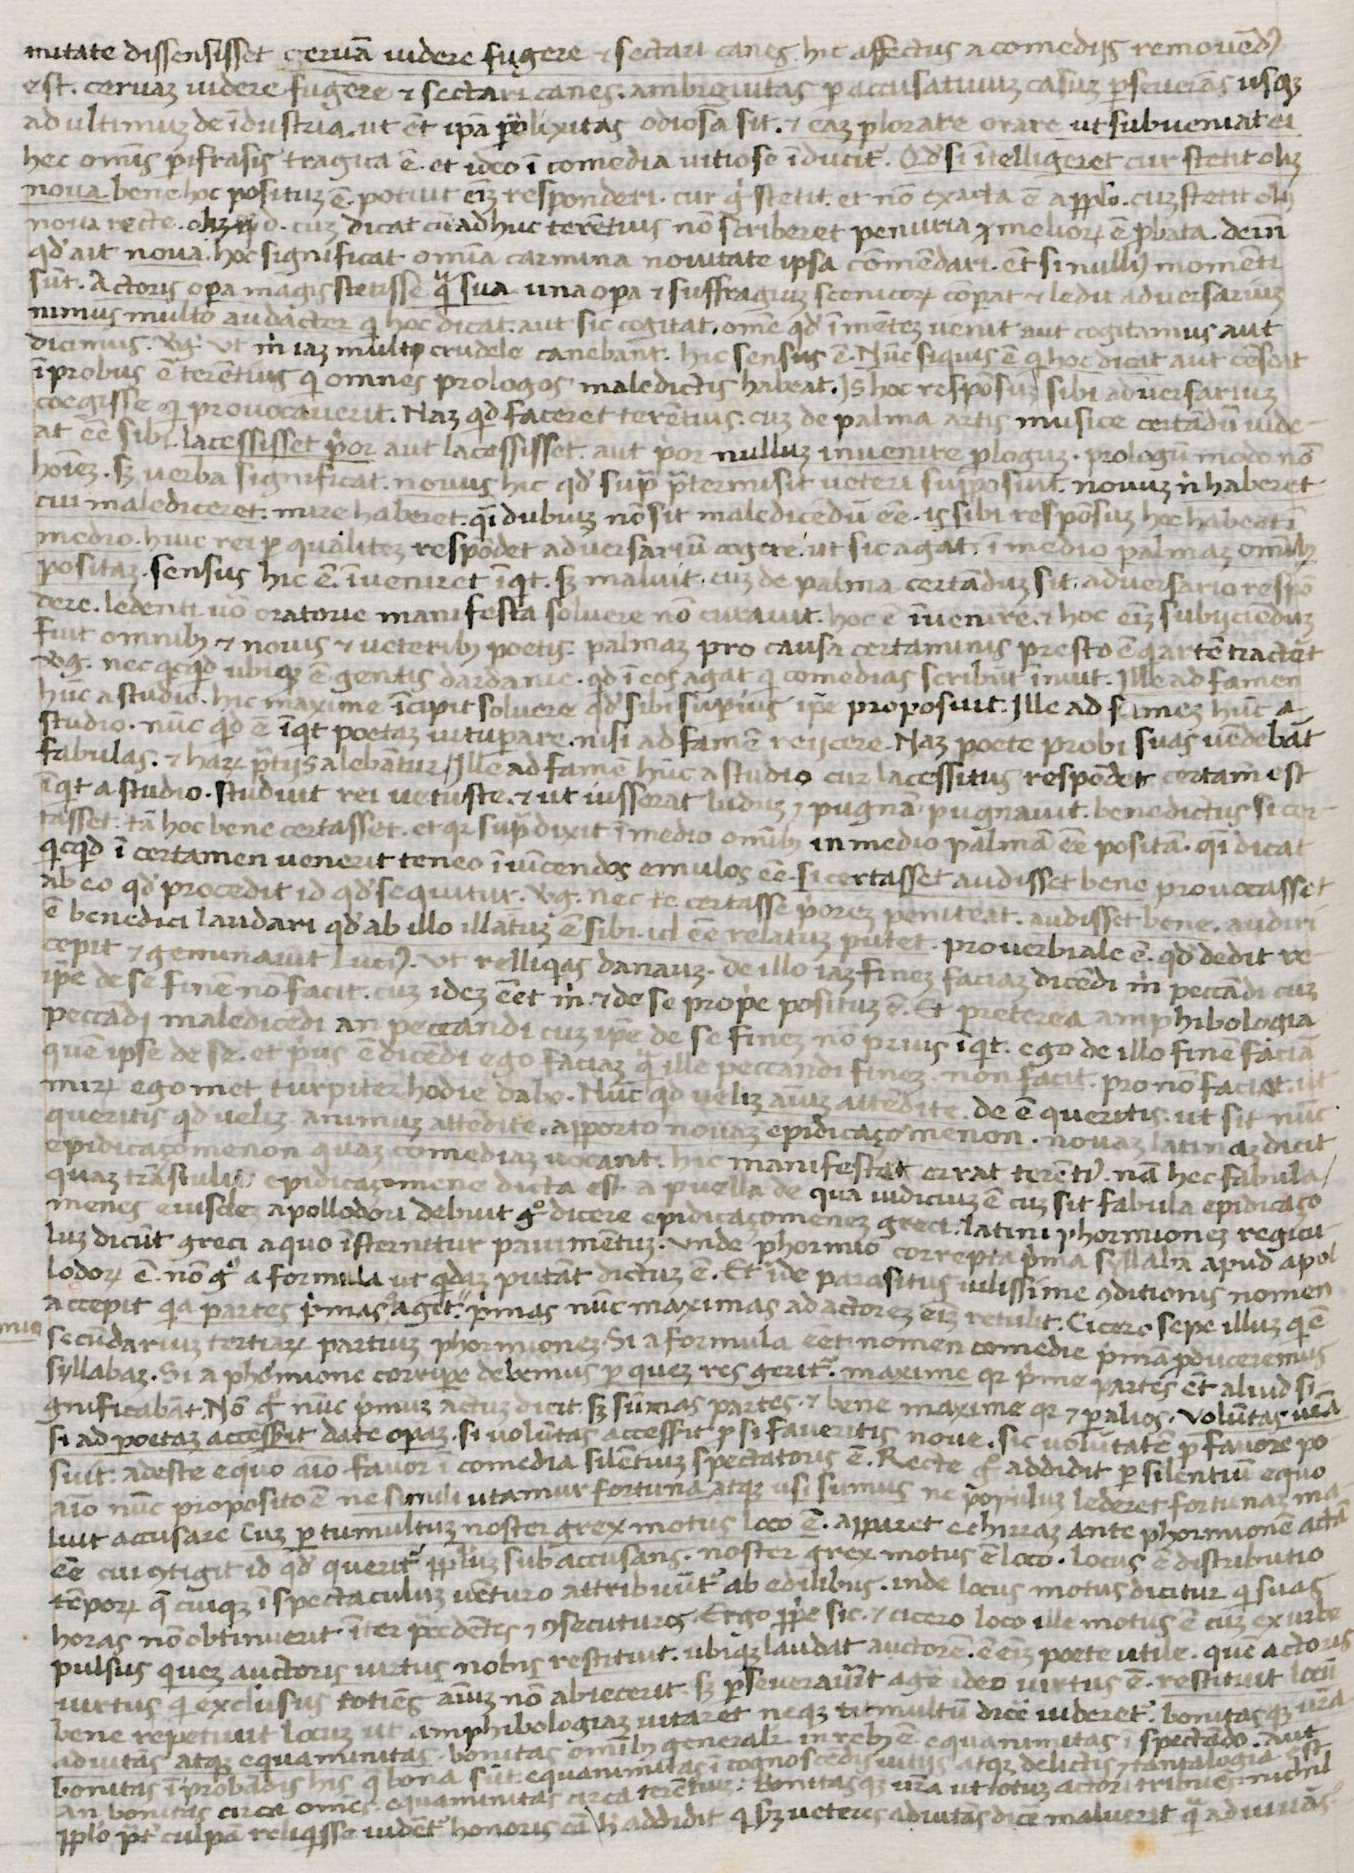 nitate dissensisset ceruā uidere fugere & sectari canes hic affectus a comediis remouēdꝰ
est. ceruaz uidere fugere & sectari canes. ambiguitas ꝑ accusatiuuz casuz ꝑseuerās usqꝫ
ad ultimuz de īdustria. ut ēt ipā ꝓlixitas odiosa sit. & eaz plorare orare ut subueniat ei
hec omīs pifrasis tragica ē. et ideo ī comedia uitiose īducitʳ. Qd̓ si ītelligeret cur stetit olīz
noua bene hoc posituz ē. potuit eīz responderi. cur gͥ stetit. et nō exacta ē a pplo. cuz stetit olīz
noua recte. cuz dicat cū adhuc terētius nō scriberet penuria meliorꝝ ē ꝓbata. dein
qd̓ ait noua. hoc significat omīa carmina nouitate ipsa cōmēdari. ēt si nulliꝰ momēti
sūt. Actoris oꝑa magis stetisse qͣ sua una oꝑa & suffragiuz scenicorꝝ cōꝑat & ledit aduersariuz
nimus multo audacter qͥ hoc dicat. aut sic cogitat. omē qd̓ ī mētez uenit aut cogitamus aut
dicimus. Vg. ut m̄ iaz multi crudele canebant. hic sensus ē. Nūc siquis ē qͥ hoc dicat aut cēseat
īprobus ē terētius qͥ omnes prologos maledictis habeat. Is hoc respōsuz sibi aduersariuz
coegisse qͥ prouocauerit. Naz qd faceret terētius. cuz de palma artis musice certādū uide-
at eē sibi. lacessisset pͥor aut lacessisset. aut pͥor nulluz inuenire prologuz. prologū modo nō
hoīez. sꝫ uerba significat. nouus hic qd̓ supͣ pͣtermisit ueteri supposuit. nouuz n̄ haberet
cui malediceret. mire haberet. qͣi dubiuz nō sit maledicēdū eē. is sibi respōsuz hoc habeat ī
medio. huic rei ꝑ qualitez respōdet aduersariū cogere. ut sic agat. ī medio palmaz omībꝫ
positaz. sensus hic ē. īueniret īqͥt. sꝫ maluit. cuz de palma certāduz sit. aduersario respō
dere. ledenti uō oratorie manifesta soluere nō curauit. hoc ē īuenire. & hoc eīz subijciēduz
fuit omnibꝫ & nouis & ueteribꝫ poetis. palmaz pro causa certaminis presto ē qͥ artē tractēt
Vg. nec qͥcqd ubiqꝫ ē gentis dardanie. qd ī eos agat qͥ comedias scribūt īnuit. Ille ad famen
hūc a studio. hic maxime īcipit soluere qd̓ sibi suꝑius ip̄e proposuit. Ille ad famez hūc a
studio. nūc qd ē īqͥt poetaz uituꝑare. nisi ad famē reijcere. Naz poete probi suas uēdebāt
fabulas. & harꝝ pͣtijs alebātur. Ille ad famē hūc a studio cur lacessitus respōdet certam est
īqͥt a studio. studuit rei uetuste. & ut iusserat ludus pugna pugnauit. benedictus si cer-
tasset. tā hoc bene certasset. et qꝛ supͣ dixit ī medio omībꝫ in medio palmā eē positā. qͣi dicat
qͥcqd ī certamen uenerit teneo īuīcendos emulos eē. si certasset audisset bene prouocasset
ab eo qd̓ procedit id qd̓ sequitur. Vg. nec te certasse pͥorez peniteat. audisset bene. audiri
ē benedici laudari qd̓ ab illo illatuz ē sibi. id eē relatuz putet. prouerbiale ē. qd̓ dedit re-
cepit & geminauit Luciꝰ. ut relliqͥas danauz. de illo iaz finez faciaz dicēdi m̄ peccādi cuz
ip̄e de se finē nō facit. cuz idez eēt m̄. & de se prop̄e posituz ē. Et preterea amphibologia
peccādi maledicēdi an peccandi cuz ip̄e de se finez nō prius īqͥt. ego de illo finē faciā
quē ipse de se. et pͥus ē dicēdi ego faciaz qͣ ille peccandi finez. non facit. pro nō faciat. ut
mirꝝ egomet turpiter hodie dabo. Nūc qd uelīz aīuz attēdite. de ē queritis. ut sit nūc
queritis qd uelīz animuz attēdite. apporto nouaz epidicaçomenon. nouaz latinaz dicit
epidicaçomenon quaz comediaz uocant. hic manifestat errat terētiꝰ. nā hec fabula
quaz trāstulit epidicaçomene dicta est a puella de qua iudiciuz ē cuz sit fabula epidicaço
menes eiusdez apollodori debuit gͦ dicere epidicaçomenez greci. latini phormionez regicu
luz dicūt greci a quo īsternitur pauimētuz. unde phormio correpta pͥma syllaba apud apol
lodorꝝ ē. nō gͦ a formula ut qͥdaz putāt dictuz ē. Et īde parasitus uilissime ꝯditionis nomen
accepit qͥa partes pͥmas agit. pͥmas nūc maximas ad actorez eīz retulit. Cicero sepe illuz qͥ ē
secūdarius tertiarꝝ partiuz phormionez. Si a formula eēt nomen comedie pͥmā ꝓduceremus
syllabaz. Si a phormione corripe debemus ꝑ quez res geritʳ. maxime qꝛ pͥme partes ēt aliud si-
gnificabāt. Nō gͦ nūc pͥmuz actuz dicit sꝫ sūmas partes. & bene maxime qꝛ & ꝑ alios. Volūtas urā
si ad poetaz accessit date opāz. si volūtas accessit ꝑ si faueritis noue. sic uolūtatē ꝑ fauore po
suit. adeste equo aīo fauor ī comedia silētiuz spectatoris ē. Recte gͦ addidit ꝑ silentiū equo
aīo nūc proposito ē ne simili utamur fortuna atqꝫ usi sumus ne populuz lederet fortunaz ma-
luit accusare Cuz ꝑ tumultuz noster grex motus loco ē. apparet echirraz ante phormionē actā
eē cui ꝯtigit id qd̓ queritʳ ppluz sub accusans. noster grex motus ē loco. locus ē distributio
tēporꝝ qͥ cuiqꝫ ī spectaculuz uēturo attribuūtʳ ab edilibus. inde locus motus dicitur qͥ suas
horas nō obtinuerit īter pͣcedētes & ꝯsecuturos. Ergo prop̄e sic. & cicero loco ille motus ē cuz ex urbe
pulsus quez auctoris uirtus nobis restituit. ubiqꝫ laudat auctorē. ē eīz poete utile. que actoris
uirtus qͥ exclusus totiens aīuz nō abiecerit. sꝫ ꝑseuerauit agē ideo uirtus ē. restituit locū
bene repetiuit locuz ut amphibologiaz uitaret neqꝫ tumultū dicē uideretʳ. bonitasqꝫ urā
adiutās atqꝫ equanimitas. bonitas omībꝫ generalr̄ in rebꝫ ē equanimitas ī spectādo. aut
bonitas ī probādis his qͥ bona sūt. equanimitas ī cognoscēdis uitijs atqꝫ delictis & tantalogia est
an bonitas circa omēs. equanimitas circa terētiuz. Bonitasqꝫ urā ut totuz actori tribues. nichil
pplo pͣtʳ culpā reliqͥsse uidetʳ honoris cā h addidit qͥ sꝫ ueteres adiutās dicē maluerit qͣ adiuuās